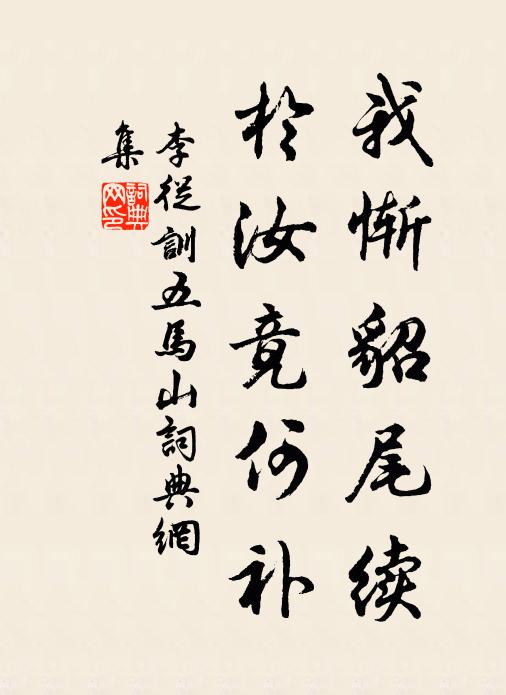 我惭貂尾续
於汝竟何补
李從訓五馬山詞典網
集
詞典
网印